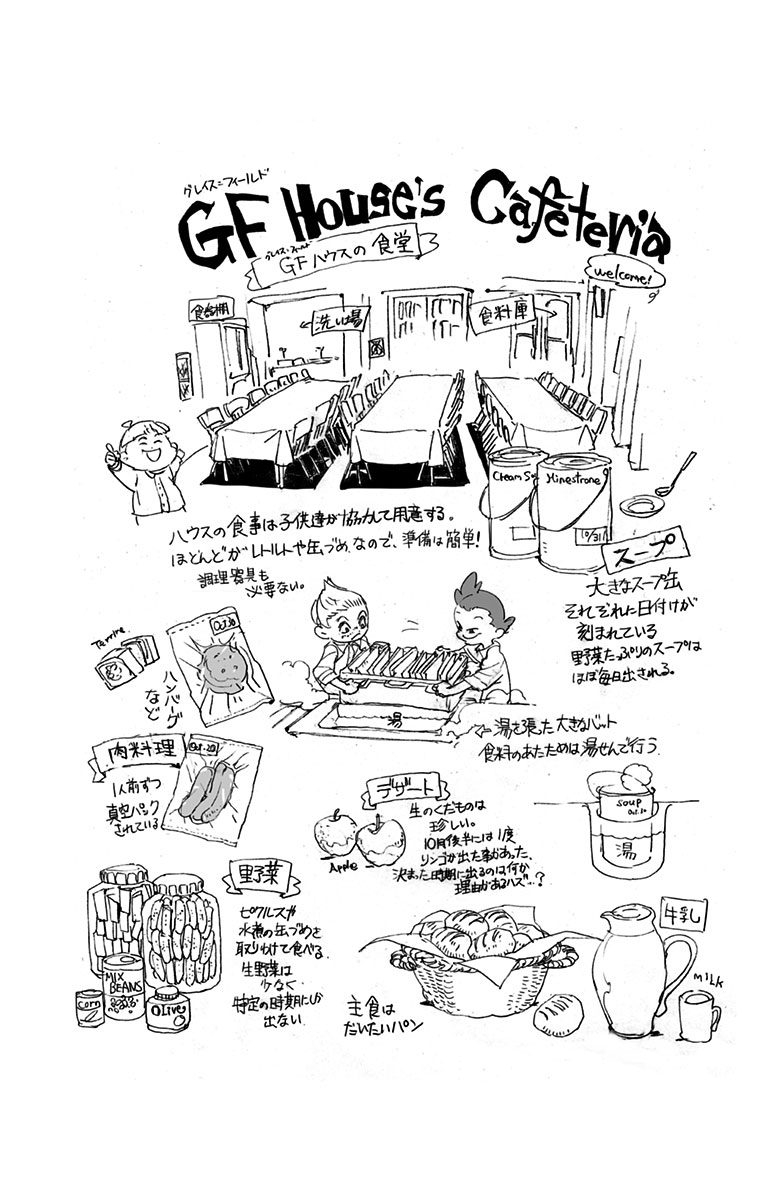 グレイス=フィールド
GF House's Cafeteria
グレイス=フィールド
GFハウスの食堂
welcome!
食器棚
←洗い場
食料庫→
Cream So
Minestrone
10/31
ハウスの食事は子供達が協力して用意する。
ほとんどがレトルトや缶づめなので、準備は簡単!
調理器具も
必要ない。
スープ
大きなスープ缶
それぞれに日付けが
刻まれている
野菜たっぷりのスープは
ほぼ毎日出される。
Terrine
Oct.30
ハンバーグ
など
湯
←湯を張った大きなバット
食料のあたためは湯せんで行う
肉料理
Oct.20
1人前ずつ
真空パック
されている
デザート
生のくだものは
珍しい。
10月後半には1度
リンゴが出た事があった、
決まった時期に出るのは何か
理由があるハズ…?
Apple
soup
Oct.30
湯
野菜
ピクルスや
水煮の缶づめを
取りわけて食べる
生野菜は
少なく
特定の時期にしか
出ない
MIX
BEANS
Corn
Olive
主食は
だいたいパン
牛乳
MILK